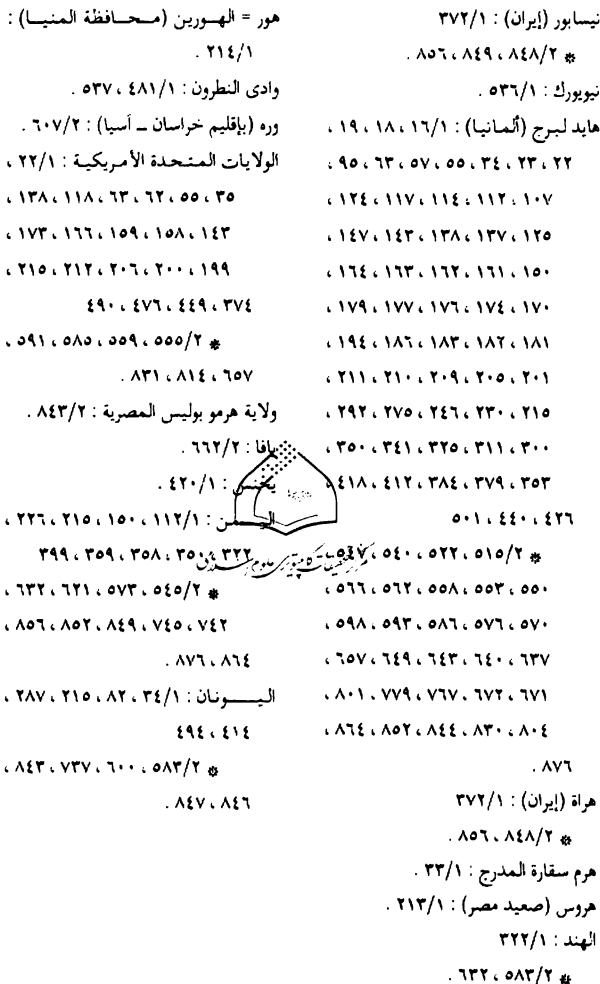 نيسابور (إيران) : ٣٧٢/١
* ٨٤٨/٢ ، ٨٤٩ ، ٨٥٦ .
نيويورك : ٥٣٦/١ .
هايد لبرج (ألمانيا) : ١٦/١ ، ١٨ ، ١٩ ،
٢٢ ، ٢٣ ، ٣٤ ، ٥٥ ، ٥٧ ، ٦٣ ، ٩٥ ،
١٠٧ ، ١١٢ ، ١١٤ ، ١١٧ ، ١٢٤ ،
١٢٥ ، ١٣٧ ، ١٣٨ ، ١٤٣ ، ١٤٧ ،
١٥٠ ، ١٦١ ، ١٦٢ ، ١٦٣ ، ١٦٤ ،
١٧٠ ، ١٧٤ ، ١٧٦ ، ١٧٧ ، ١٧٩ ،
١٨١ ، ١٨٢ ، ١٨٣ ، ١٨٦ ، ١٩٤ ،
٢٠١ ، ٢٠٥ ، ٢٠٩ ، ٢١٠ ، ٢١١ ،
٢١٥ ، ٢٣٠ ، ٢٤٦ ، ٢٧٥ ، ٢٩٢ ،
٣٠٠ ، ٣١١ ، ٣٢٥ ، ٣٤١ ، ٣٥٠ ،
٣٥٣ ، ٣٧٩ ، ٣٨٤ ، ٤١٢ ، ٤١٨ ،
٤٢٦ ، ٤٤٠ ، ٥٠١
* ٥١٥/٢ ، ٥٢٢ ، ٥٤٠ ، ٥٤٧ ،
٥٥٠ ، ٥٥٣ ، ٥٥٨ ، ٥٦٢ ، ٥٦٦ ،
٥٧٠ ، ٥٧٦ ، ٥٨٦ ، ٥٩٣ ، ٥٩٨ ،
٦٣٧ ، ٦٤٠ ، ٦٤٣ ، ٦٤٩ ، ٦٥٧ ،
٦٧١ ، ٦٧٢ ، ٧٦٧ ، ٧٧٩ ، ٨٠١ ،
٨٠٤ ، ٨٣٠ ، ٨٤٤ ، ٨٥٢ ، ٨٦٤ ،
٨٧٦ .
هراة (إيران) : ٣٧٢/١
* ٨٤٨/٢ ، ٨٥٦ .
هرم سقارة المدرج : ٣٣/١ .
هروس (صعيد مصر) : ٢١٣/١ .
الهند : ٣٢٢/١
* ٥٨٣/٢ ، ٦٣٢ .
هور = الهورين (محافظة المنيا) :
٢١٤/١ .
وادى النطرون : ٤٨١/١ ، ٥٣٧ .
وره (بإقليم خراسان – آسيا) : ٦٠٧/٢ .
الولايات المتحدة الأمريكية : ٢٢/١ ،
٣٥ ، ٥٥ ، ٦٢ ، ٦٣ ، ١١٨ ، ١٣٨ ،
١٤٣ ، ١٥٨ ، ١٥٩ ، ١٦٦ ، ١٧٣ ،
١٩٩ ، ٢٠٠ ، ٢٠٦ ، ٢١٢ ، ٢١٥ ،
٣٧٤ ، ٤٤٩ ، ٤٧٦ ، ٤٩٠
* ٥٥٥/٢ ، ٥٥٩ ، ٥٨٥ ، ٥٩١ ،
٦٥٧ ، ٨١٤ ، ٨٣١ .
ولاية هرمو بوليس المصرية : ٨٤٣/٢ .
يافا : ٦٦٢/٢ .
يخنس : ٤٢٠/١ .
اليمن : ١١٢/١ ، ١٥٠ ، ٢١٥ ، ٢٢٦ ،
٣٢٢ ، ٣٥٠ ، ٣٥٨ ، ٣٥٩ ، ٣٩٩
* ٥٤٥/٢ ، ٥٧٣ ، ٦٢١ ، ٦٣٢ ،
٧٤٢ ، ٧٤٥ ، ٨٤٩ ، ٨٥٢ ، ٨٥٦ ،
٨٦٤ ، ٨٧٦ .
اليونان : ٣٤/١ ، ٨٢ ، ٢١٥ ، ٢٨٧ ،
٤١٤ ، ٤٩٤
* ٥٨٣/٢ ، ٦٠٠ ، ٧٣٧ ، ٨٤٣ ،
٨٤٦ ، ٨٤٧ .
مرکز تحقیقات کامپیوتری علوم اسلامی